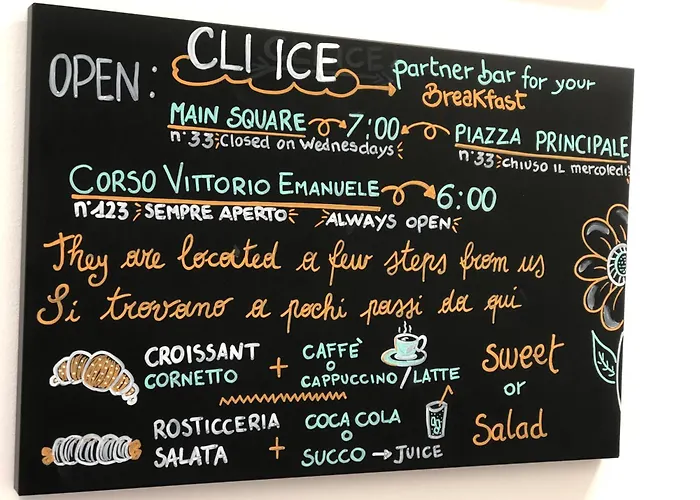 OPEN: CLI ICE partner bar for your
Breakfast
MAIN SQUARE 7:00 PIAZZA PRINCIPALE
n°33; Closed on Wednesdays n°33; CHIUSO IL mercoledì
CORSO VITTORIO EMANUELE 6:00
n°123 SEMPRE APERTO ALWAYS OPEN
They are located a few steps from us
Si trovano a pochi passi da qui
CROISSANT + CAFFÈ Sweet
CORNETTO O
CAPPUCCINO/LATTE
or
ROSTICCERIA + COCA COLA Salad
SALATA O
SUCCO → JUICE